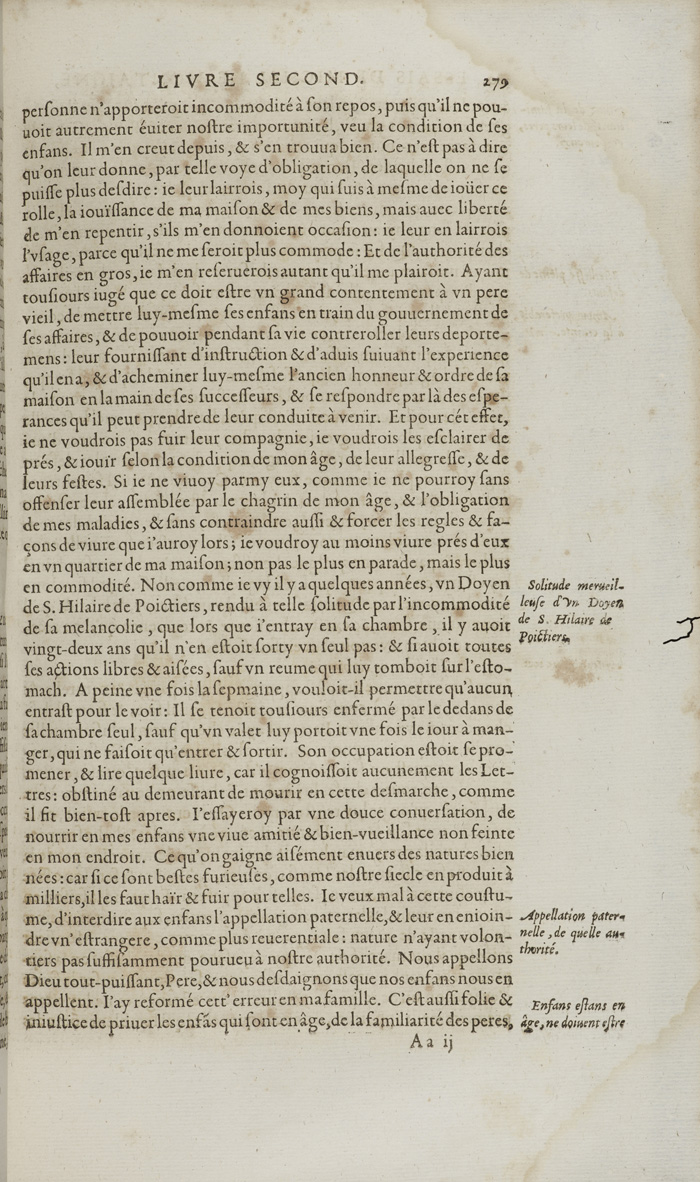 LIVRE SECOND. 279
perſonne n'apporteroit incommodité à ſon repos, puis qu'il ne pou-
uoit autrement éuiter noſtre importunité, veu la condition de ſes
enfans. Il m'en creut depuis, & s'en trouua bien. Ce n'eſt pas à dire
qu'on leur donne, par telle voye d'obligation, de laquelle on ne ſe
puiſſe plus deſdire: ie leur lairrois, moy qui ſuis à meſme de ioüer ce
rolle, la iouïſſance de ma maiſon & de mes biens, mais auec liberté
de m'en repentir, s'ils m'en donnoient occaſion: ie leur en lairrois
l'vſage, parce qu'il ne me ſeroit plus commode: Et de l'authorité des
affaires en gros, ie m'en reſeruerois autant qu'il me plairoit. Ayant
touſiours iugé que ce doit eſtre vn grand contentement à vn pere
vieil, de mettre luy-meſme ſes enfans en train du gouuernement de
ſes affaires, & de pouuoir pendant ſa vie contreroller leurs deporte-
mens: leur fourniſſant d'inſtruction & d'aduis ſuiuant l'experience
qu'il en a, & d'acheminer luy-meſme l'ancien honneur & ordre de ſa
maiſon en la main de ſes ſucceſſeurs, & ſe reſpondre par là des eſpe-
rances qu'il peut prendre de leur conduite à venir. Et pour cét effet,
ie ne voudrois pas fuir leur compagnie, ie voudrois les eſclairer de
prés, & iouïr ſelon la condition de mon âge, de leur allegreſſe, & de
leurs feſtes. Si ie ne viuoy parmy eux, comme ie ne pourroy ſans
offenſer leur aſſemblée par le chagrin de mon âge, & l'obligation
de mes maladies, & ſans contraindre auſſi & forcer les regles & fa-
çons de viure que i'auroy lors; ie voudroy au moins viure prés d'eux
en vn quartier de ma maiſon; non pas le plus en parade, mais le plus
en commodité. Non comme ie vy il y a quelques années, vn Doyen
de S. Hilaire de Poictiers, rendu à telle ſolitude par l'incommodité
de ſa melancolie, que lors que i'entray en ſa chambre, il y auoit
vingt-deux ans qu'il n'en eſtoit ſorty vn ſeul pas: & ſi auoit toutes
ſes actions libres & aiſées, ſauf vn reume qui luy tomboit ſur l'eſto-
mach. A peine vne fois la ſepmaine, vouloit-il permettre qu'aucun
entraſt pour le voir: Il ſe tenoit touſiours enfermé par le dedans de
ſa chambre ſeul, ſauf qu'vn valet luy portoit vne fois le iour à man-
ger, qui ne faiſoit qu'entrer & ſortir. Son occupation eſtoit ſe pro-
mener, & lire quelque liure, car il cognoiſſoit aucunement les Let-
tres: obſtiné au demeurant de mourir en cette deſmarche, comme
il fit bien-toſt apres. I'eſſayeroy par vne douce conuerſation, de
nourrir en mes enfans vne viue amitié & bien-vueillance non feinte
en mon endroit. Ce qu'on gaigne aiſément enuers des natures bien
nées: car ſi ce ſont beſtes furieuſes, comme noſtre ſiecle en produit à
milliers, il les faut haïr & fuir pour telles. Ie veux mal à cette couſtu-
me, d'interdire aux enfans l'appellation paternelle, & leur en enioin-
dre vn' eſtrangere, comme plus reuerentiale: nature n'ayant volon-
tiers pas ſuffiſamment pourueu à noſtre authorité. Nous appellons
Dieu tout-puiſſant, Pere, & nous deſdaignons que nos enfans nous en
appellent. I'ay reformé cett' erreur en ma famille. C'eſt auſſi folie &
iniuſtice de priuer les enfãs qui ſont en âge, de la familiarité des peres,
Aa ij
Solitude merueil-
leuſe d'vn Doyen
de S. Hilaire de
Poictiers.
Appellation pater-
nelle, de quelle au-
thorité.
Enfans eſtans en
âge, ne doiuent eſtre